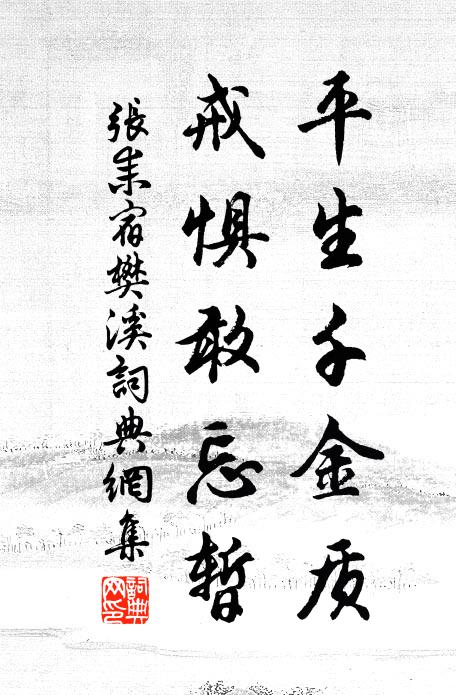 平生千金质
戒惧敢忘暂
張耒宿樊溪詞典網集
詞典網印